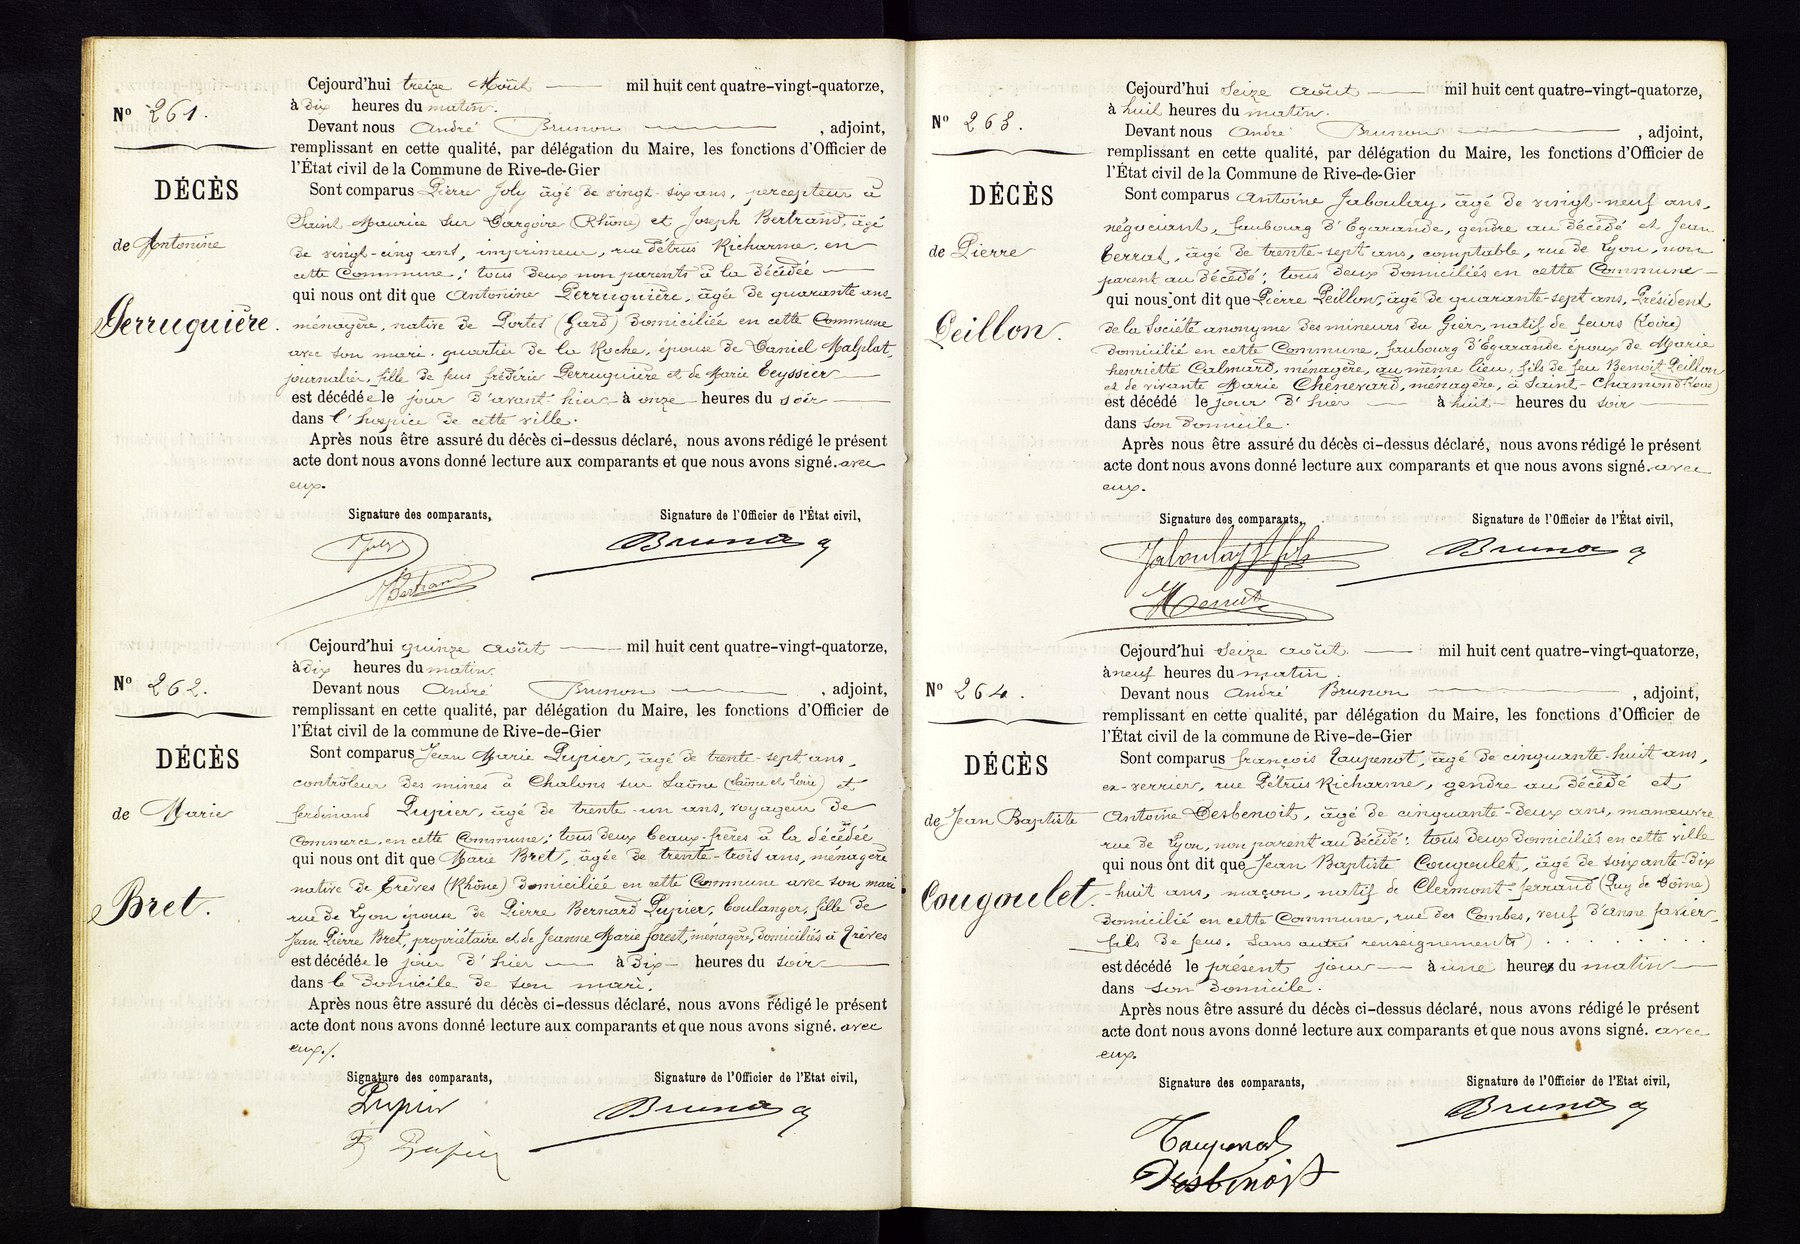 Nº 261.
DÉCÈS
de Antonine
Perruquière.
Cejourd'hui treize Août mil huit cent quatre-vingt-quatorze,
à dix heures du matin.
Devant nous André Brunon , adjoint,
remplissant en cette qualité, par délégation du Maire, les fonctions d'Officier de
l'État civil de la Commune de Rive-de-Gier
Sont comparus Pierre Joly âgé de vingt-six ans, percepteur à
Saint Maurice sur Dargoire (Rhône) et Joseph Bertrand, âgé
de vingt-cinq ans, imprimeur, rue Pétrus Richarme, en
cette Commune; tous deux non parents à la décédée
qui nous ont dit que Antonine Perruquière, âgée de quarante ans
ménagère, native de Portes (Gard) domiciliée en cette Commune
avec son mari, quartier de la Roche, épouse de Daniel Malplat,
journalier, fille de feus frédéric Perruquière et de Marie Teyssier
est décédée le jour d'avant hier à onze heures du soir
dans l'hospice de cette ville.
Après nous être assuré du décès ci-dessus déclaré, nous avons rédigé le présent
acte dont nous avons donné lecture aux comparants et que nous avons signé. avec
eux.
Signature des comparants, Signature de l'Officier de l'État civil,
Joly Brunon
JBertrand
Nº 262.
DÉCÈS
de Marie
Bret.
Cejourd'hui quinze août mil huit cent quatre-vingt-quatorze,
à dix heures du matin.
Devant nous André Brunon , adjoint,
remplissant en cette qualité, par délégation du Maire, les fonctions d'Officier de
l'État civil de la commune de Rive-de-Gier
Sont comparus Jean Marie Pupier, âgé de trente-sept ans,
contrôleur des mines à Chalons sur Saône (Saône et Loire) et
ferdinand Pupier, âgé de trente-un ans, voyageur de
Commerce, en cette Commune; tous deux beaux-frères à la décédée
qui nous ont dit que Marie Bret, âgée de trente-trois ans, ménagère
native de Trèves (Rhône) domiciliée en cette Commune avec son mari
rue de Lyon épouse de Pierre Bernard Pupier, boulanger, fille de
Jean Pierre Bret, propriétaire et de Jeanne Marie forest, ménagère, domiciliés à Trèves
est décédée le jour d'hier à dix heures du soir
dans le domicile de son mari.
Après nous être assuré du décès ci-dessus déclaré, nous avons rédigé le présent
acte dont nous avons donné lecture aux comparants et que nous avons signé. avec
eux./.
Signature des comparants, Signature de l'Officier de l'Etat civil,
Pupier Brunon
F Pupier
Nº 263.
DÉCÈS
de Pierre
Peillon.
Cejourd'hui seize août mil huit cent quatre-vingt-quatorze,
à huit heures du matin.
Devant nous André Brunon , adjoint,
remplissant en cette qualité, par délégation du Maire, les fonctions d'Officier de
l'État civil de la Commune de Rive-de-Gier
Sont comparus Antoine Jaboulay, âgé de vingt-neuf ans,
négociant, faubourg d'Egarande, gendre au décédé et Jean
Terrat, âgé de trente-sept ans, comptable, rue de Lyon, non
parent au décédé; tous deux domiciliés en cette Commune
qui nous ont dit que Pierre Peillon, âgé de quarante-sept ans, Président
de la Société anonyme des mineurs du Gier, natif de feurs (Loire)
domicilié en cette Commune, faubourg d'Egarande époux de Marie
henriette Calmard, ménagère, au même lieu, fils de feu Benoit Peillon
et de vivante Marie Chenevard, ménagère, à Saint-Chamond (Loire)
est décédé le jour d'hier à huit heures du soir
dans son domicile.
Après nous être assuré du décès ci-dessus déclaré, nous avons rédigé le présent
acte dont nous avons donné lecture aux comparants et que nous avons signé. avec
eux.
Signature des comparants, Signature de l'Officier de l'État civil,
Jaboulay fils Brunon
Nº 264.
DÉCÈS
de Jean Baptiste
Cougoulet.
Cejourd'hui seize août mil huit cent quatre-vingt-quatorze,
à neuf heures du matin.
Devant nous André Brunon , adjoint,
remplissant en cette qualité, par délégation du Maire, les fonctions d'Officier de
l'État civil de la commune de Rive-de-Gier
Sont comparus françois Taupenot, âgé de cinquante-huit ans,
ex-verrier, rue Pétrus Richarme, gendre au décédé et
Antoine Desbenoit, âgé de cinquante-deux ans, manœuvre
rue de Lyon, non parent au décédé; tous deux domiciliés en cette ville
qui nous ont dit que Jean Baptiste Cougoulet, âgé de soixante-dix
-huit ans, maçon, natif de Clermont-ferrand (Puy de Dôme)
domicilié en cette Commune, rue des Combes, veuf d'Anne favier,
fils de feus. (Sans autres renseignements)
est décédé le présent jour à une heures du matin
dans son domicile.
Après nous être assuré du décès ci-dessus déclaré, nous avons rédigé le présent
acte dont nous avons donné lecture aux comparants et que nous avons signé. avec
eux.
Signature des comparants, Signature de l'Officier de l'Etat civil,
Taupenot Brunon
Desbenoit